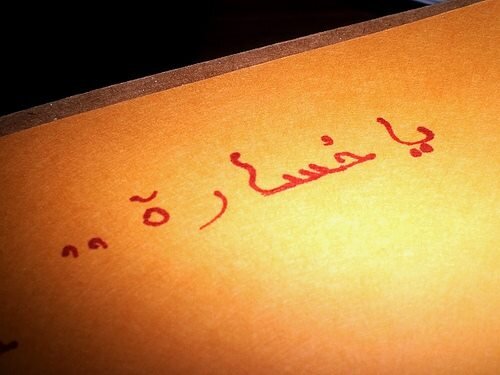 يا خسارة ,,